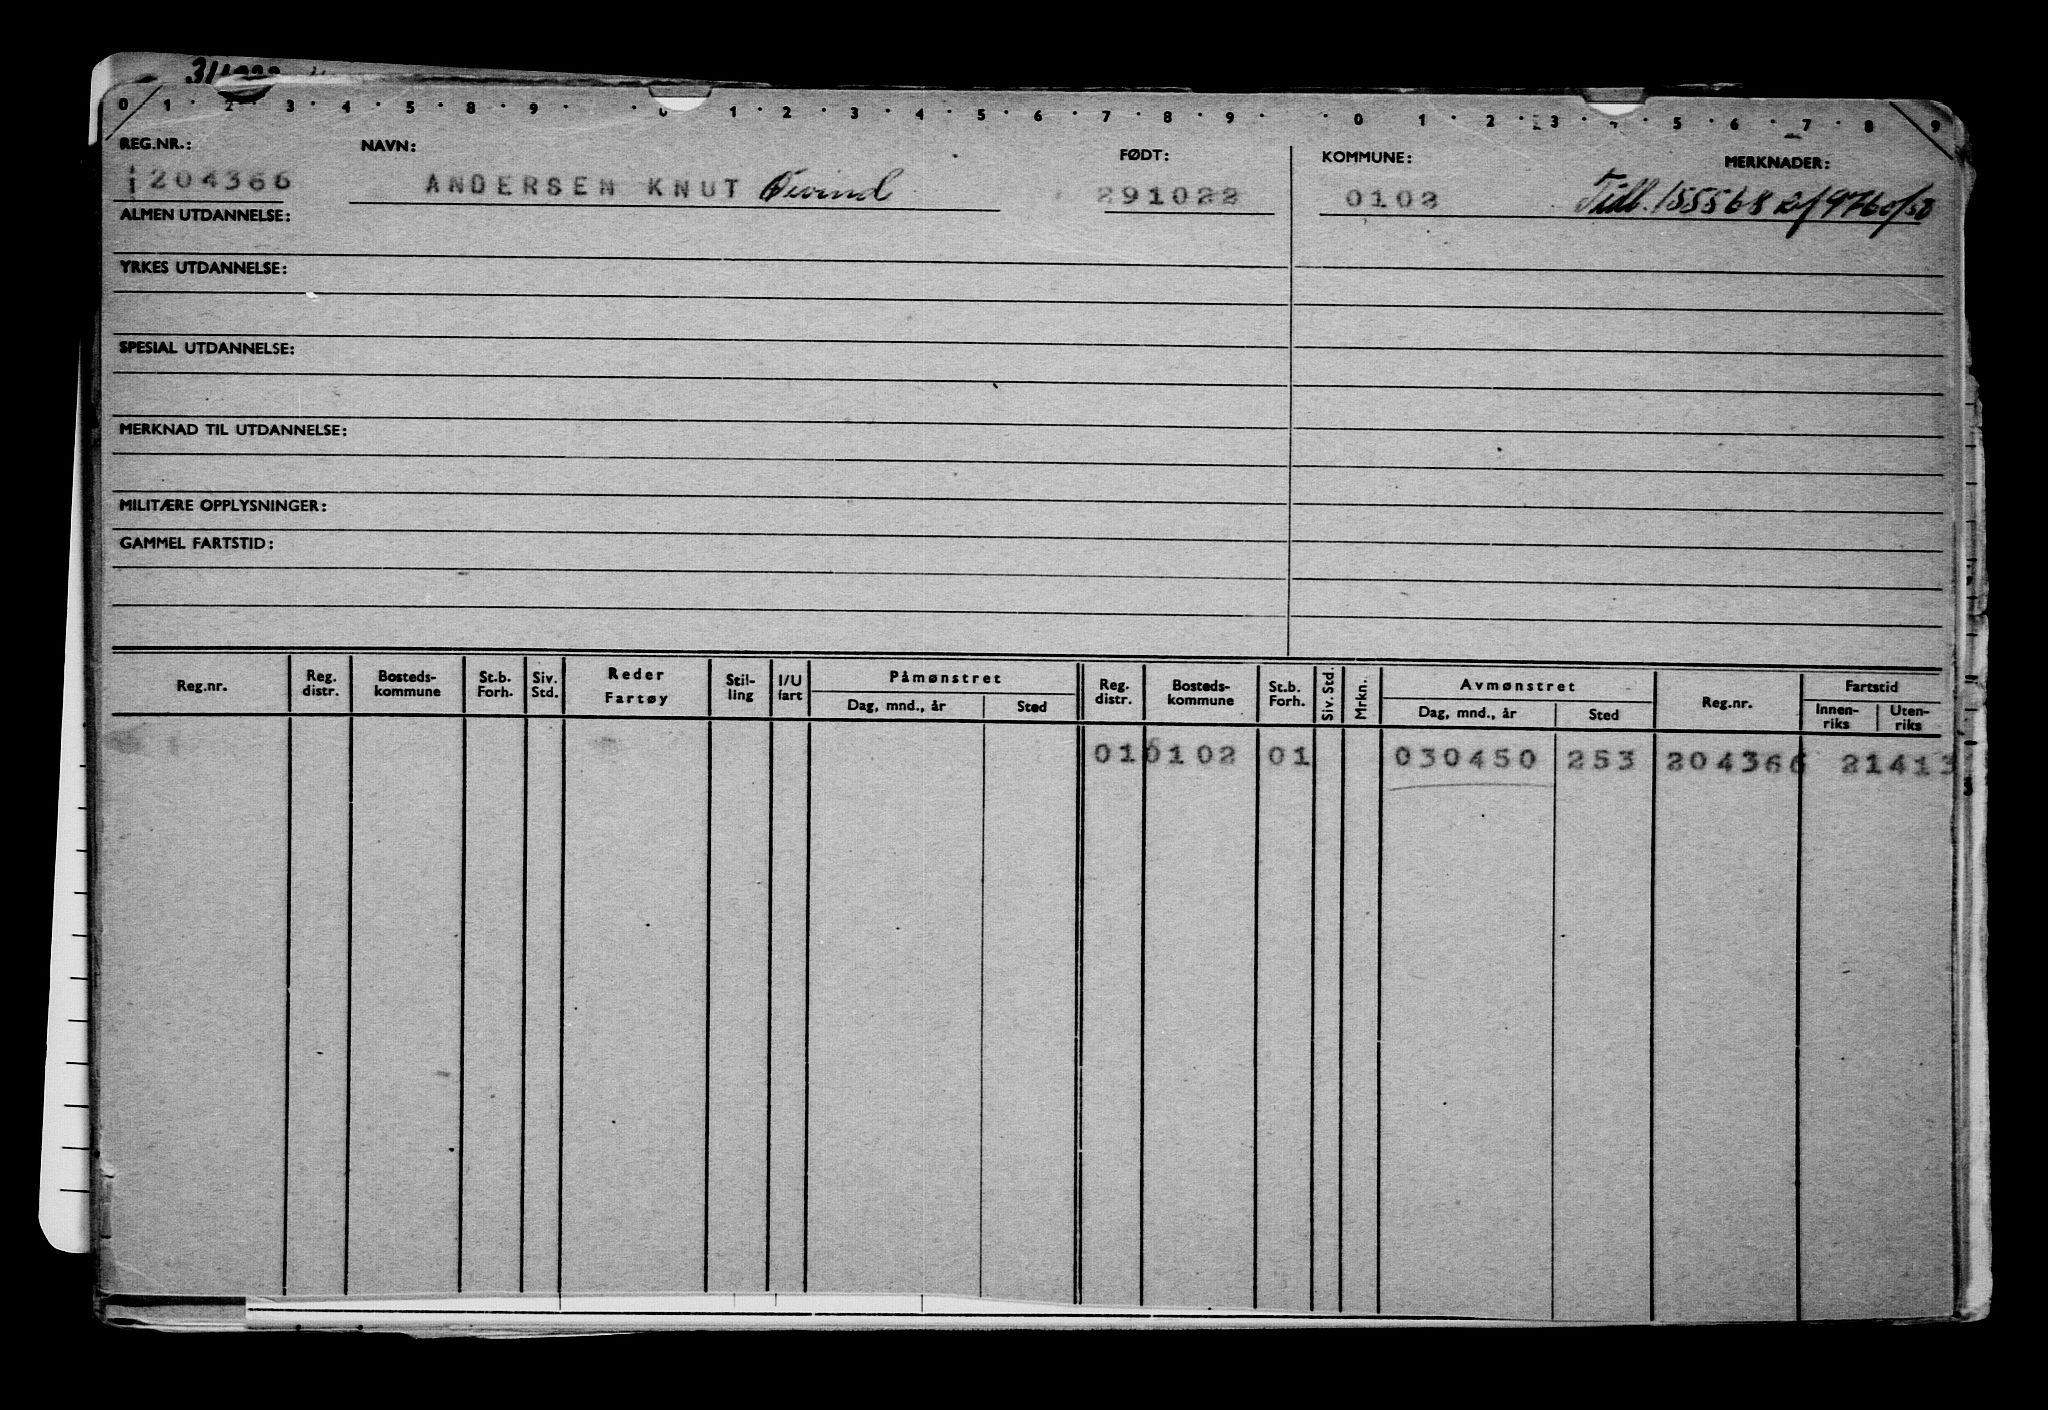 0 1 2 3 4 5 8 9 0 1 2 3 4 5 6 7 8 9 0 1 2 3 5 6 7 8 9
REG.NR.: NAVN: FØDT: KOMMUNE: MERKNADER:
204366 ANDERSEN KNUT Øivind 291022 0102 Till. 155568 2/9760/50
ALMEN UTDANNELSE:
YRKES UTDANNELSE:
SPESIAL UTDANNELSE:
MERKNAD TIL UTDANNELSE:
MILITÆRE OPPLYSNINGER:
GAMMEL FARTSTID:
Reg.nr. Reg. distr. Bosteds-kommune St.b. Forh. Siv. Std. Reder Fartøy Stil-ling I/U fart Påmønstret Dag, mnd., år Sted Reg. distr. Bosteds-kommune St.b. Forh. Siv. Std. Mrkn. Avmønstret Dag, mnd., år Sted Reg.nr. Fartstid Innen-riks Uten-riks
01 0102 01 030450 253 204366 21413